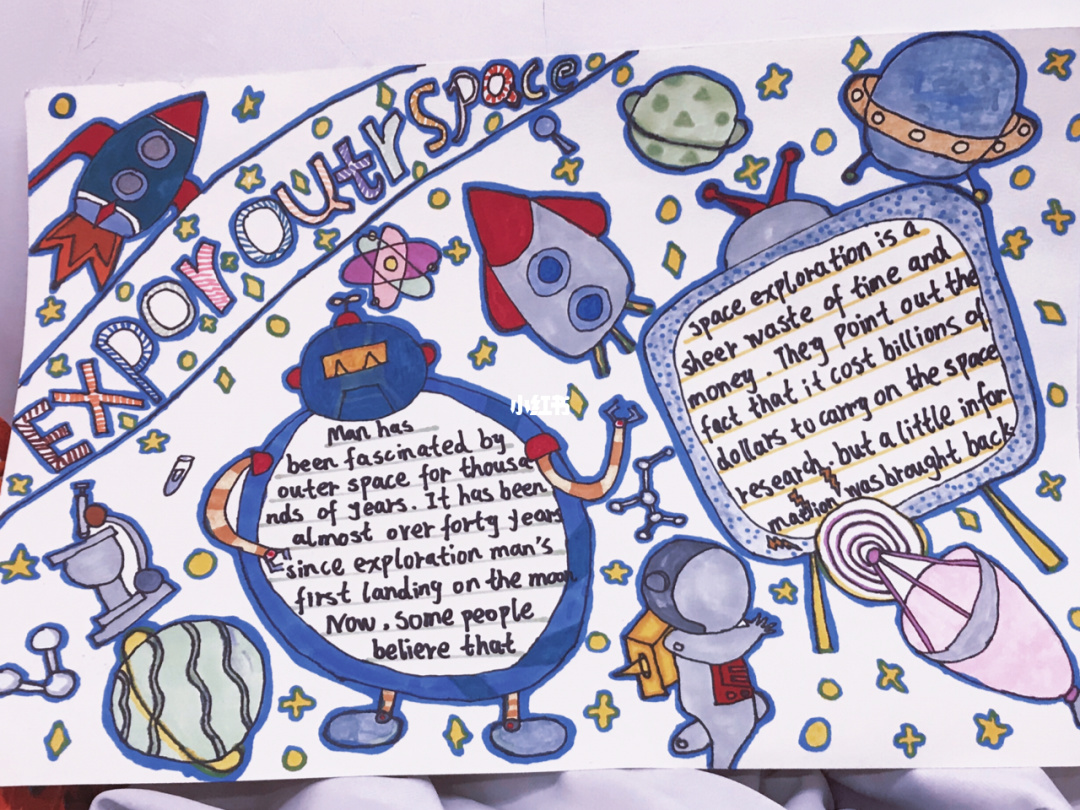 Expor outr space
Man has
been fascinated by
outer space for thousa
nds of years. It has been
almost over forty years
since exploration man's
first landing on the moon
Now. some people
believe that
space exploration is a
sheer waste of time and
money. They point out the
fact that it cost billions of
dollars to carry on the space
research, but a little infor
mation was brought back.
小红书